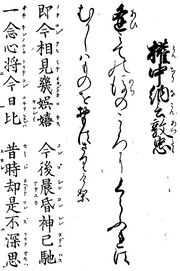 權中納言敦忠
逢みての後のこゝろにくらふれは
むかしはものをおもはさりけり
即今相見幾娯嬉　今後晨昏神已馳
一念心將今日比　昔時却是不深思